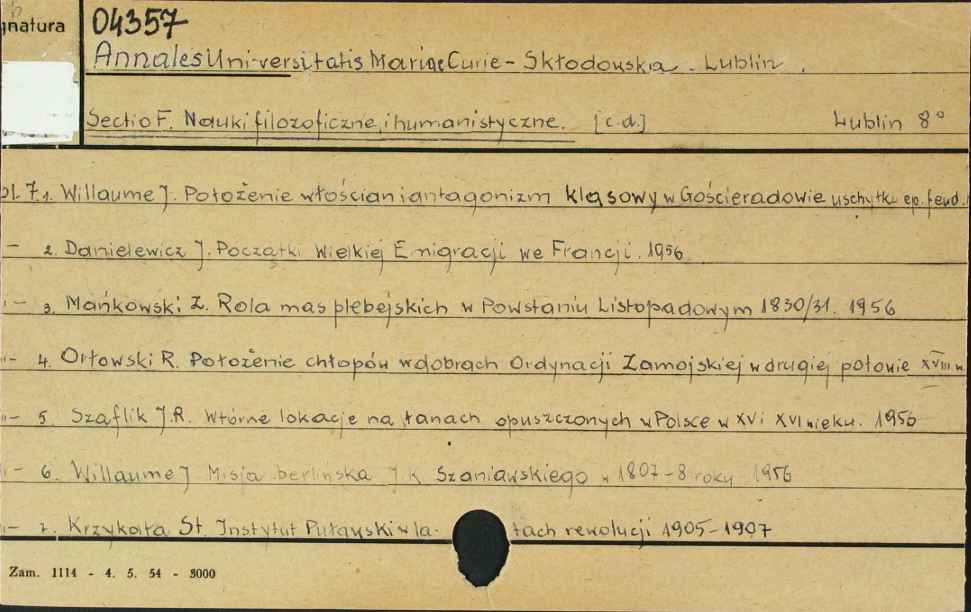 gnatura 04357
Annales Universitatis Mariae Curie - Skłodowska. Lublin.
Sectio F. Nauki filozoficzne i humanistyczne. [c.d.] Lublin 8°
ol. 7. 1. Willaume J. Położenie włościan i antagonizm klasowy w Gościeradowie u schyłku ep. feud.
"- 2. Danielewicz J. Początki Wielkiej Emigracji we Francji. 1956
"- 3. Mańkowski Z. Rola mas plebejskich w Powstaniu Listopadowym 1830/31. 1956
"- 4. Orłowski R. Położenie chłopów w dobrach Ordynacji Zamojskiej w drugiej połowie XVIII w.
"- 5. Szaflik J.R. Wtórne lokacje na łanach opuszczonych w Polsce w XV i XVI wieku. 1956
"- 6. Willaume J Misja berlińska J. K Szaniawskiego w 1807-8 roku 1956
"- 7. Krzykała St. Instytut Puławski w la- tach rewolucji 1905-1907
Zam. 1114 - 4. 5. 54 - 3000